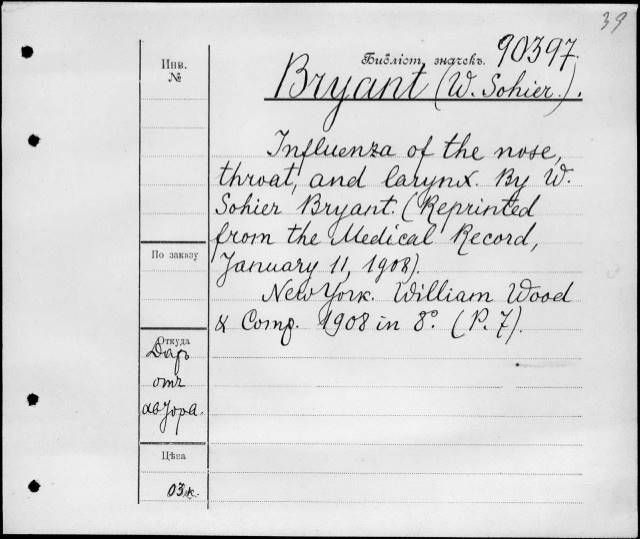 39
Инв.
№
Библіот. значекъ. 90397.
Bryant (W. Sohier.).
Influenza of the nose,
throat, and larynx. By W.
Sohier Bryant. (Reprinted
from the Medical Record,
January 11, 1908).
New York. William Wood
& Comp. 1908 in 8°. (P. 7).
По заказу
Откуда
Даръ
отъ
автора.
Цѣна
03к.